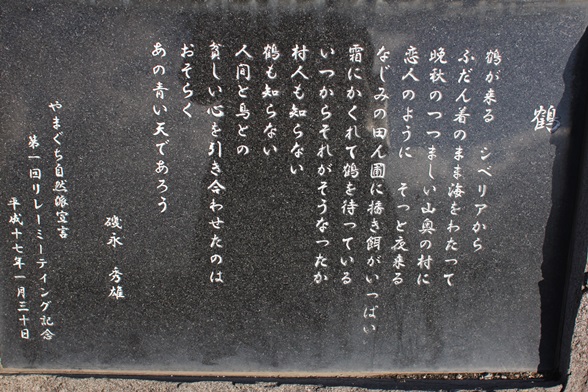 鶴
鶴が来る シベリアから
ふだん着のまま海をわたって
晩秋のつつましい山奥の村に
恋人のように そっと夜来る
なじみの田ん圃に播き餌がいっぱい
霜にかくれて鶴を待っている
いつからそれがそうなったか
村人も知らない
鶴も知らない
人間と鳥との
貧しい心を引き合わせたのは
おそらく
あの青い天であろう
磯永 秀雄
やまぐち自然派宣言
第一回リレーミーティング記念
平成十七年一月三十日